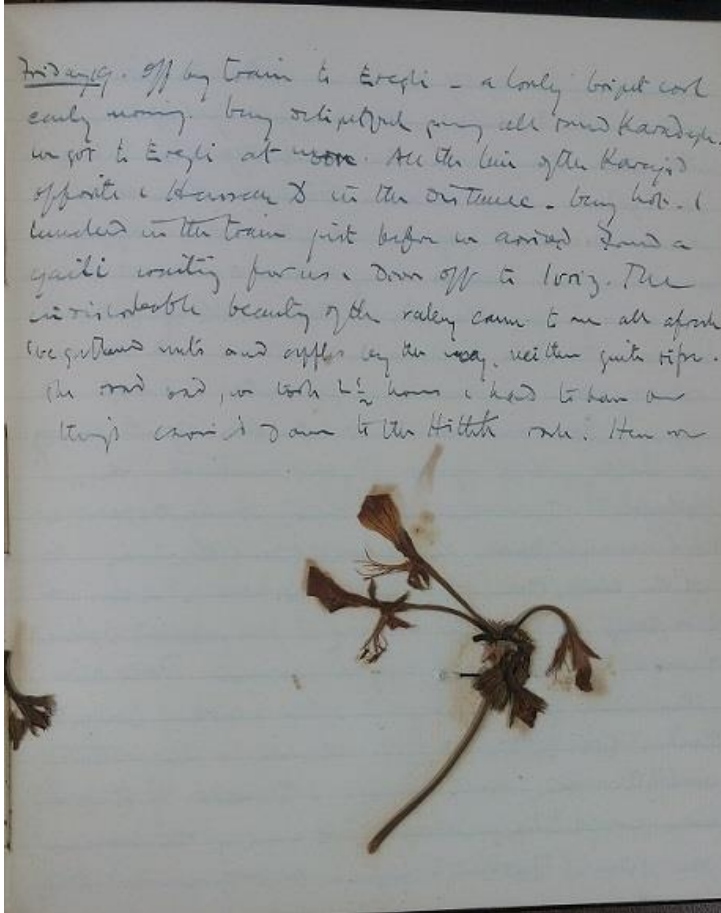 Friday 19. Off by train to Eregli - a lovely bright cool
early morning. Very delightful going all round Karadagh.
We got to Eregli at noon. All the line of the Karaja D
opposite & Hassan D in the distance. Very hot. I
lunched in the train just before we arrived. Found a
yaili waiting for us & drove off to Ivriz. The
indescribable beauty of the valley came to me all afresh
We gathered nuts and apples by the way, neither quite ripe.
The road bad, we took 2½ hours & had to have our
things carried down to the Hittite rock. Here we